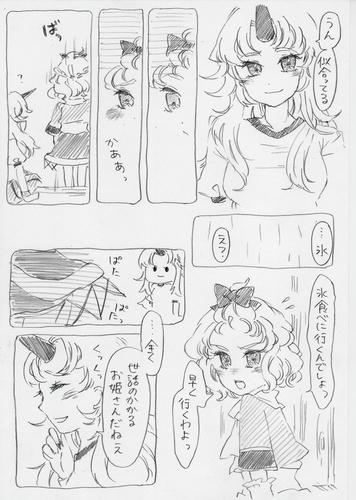 うん
似合ってる
かあぁっ
ばっ
?
…氷
え?
氷食べに行くんでしょっ
早く
行くわよっ
ぱた
ぱたっ
…全く
世話のかかる
お姫さんだねえ
くっくっ